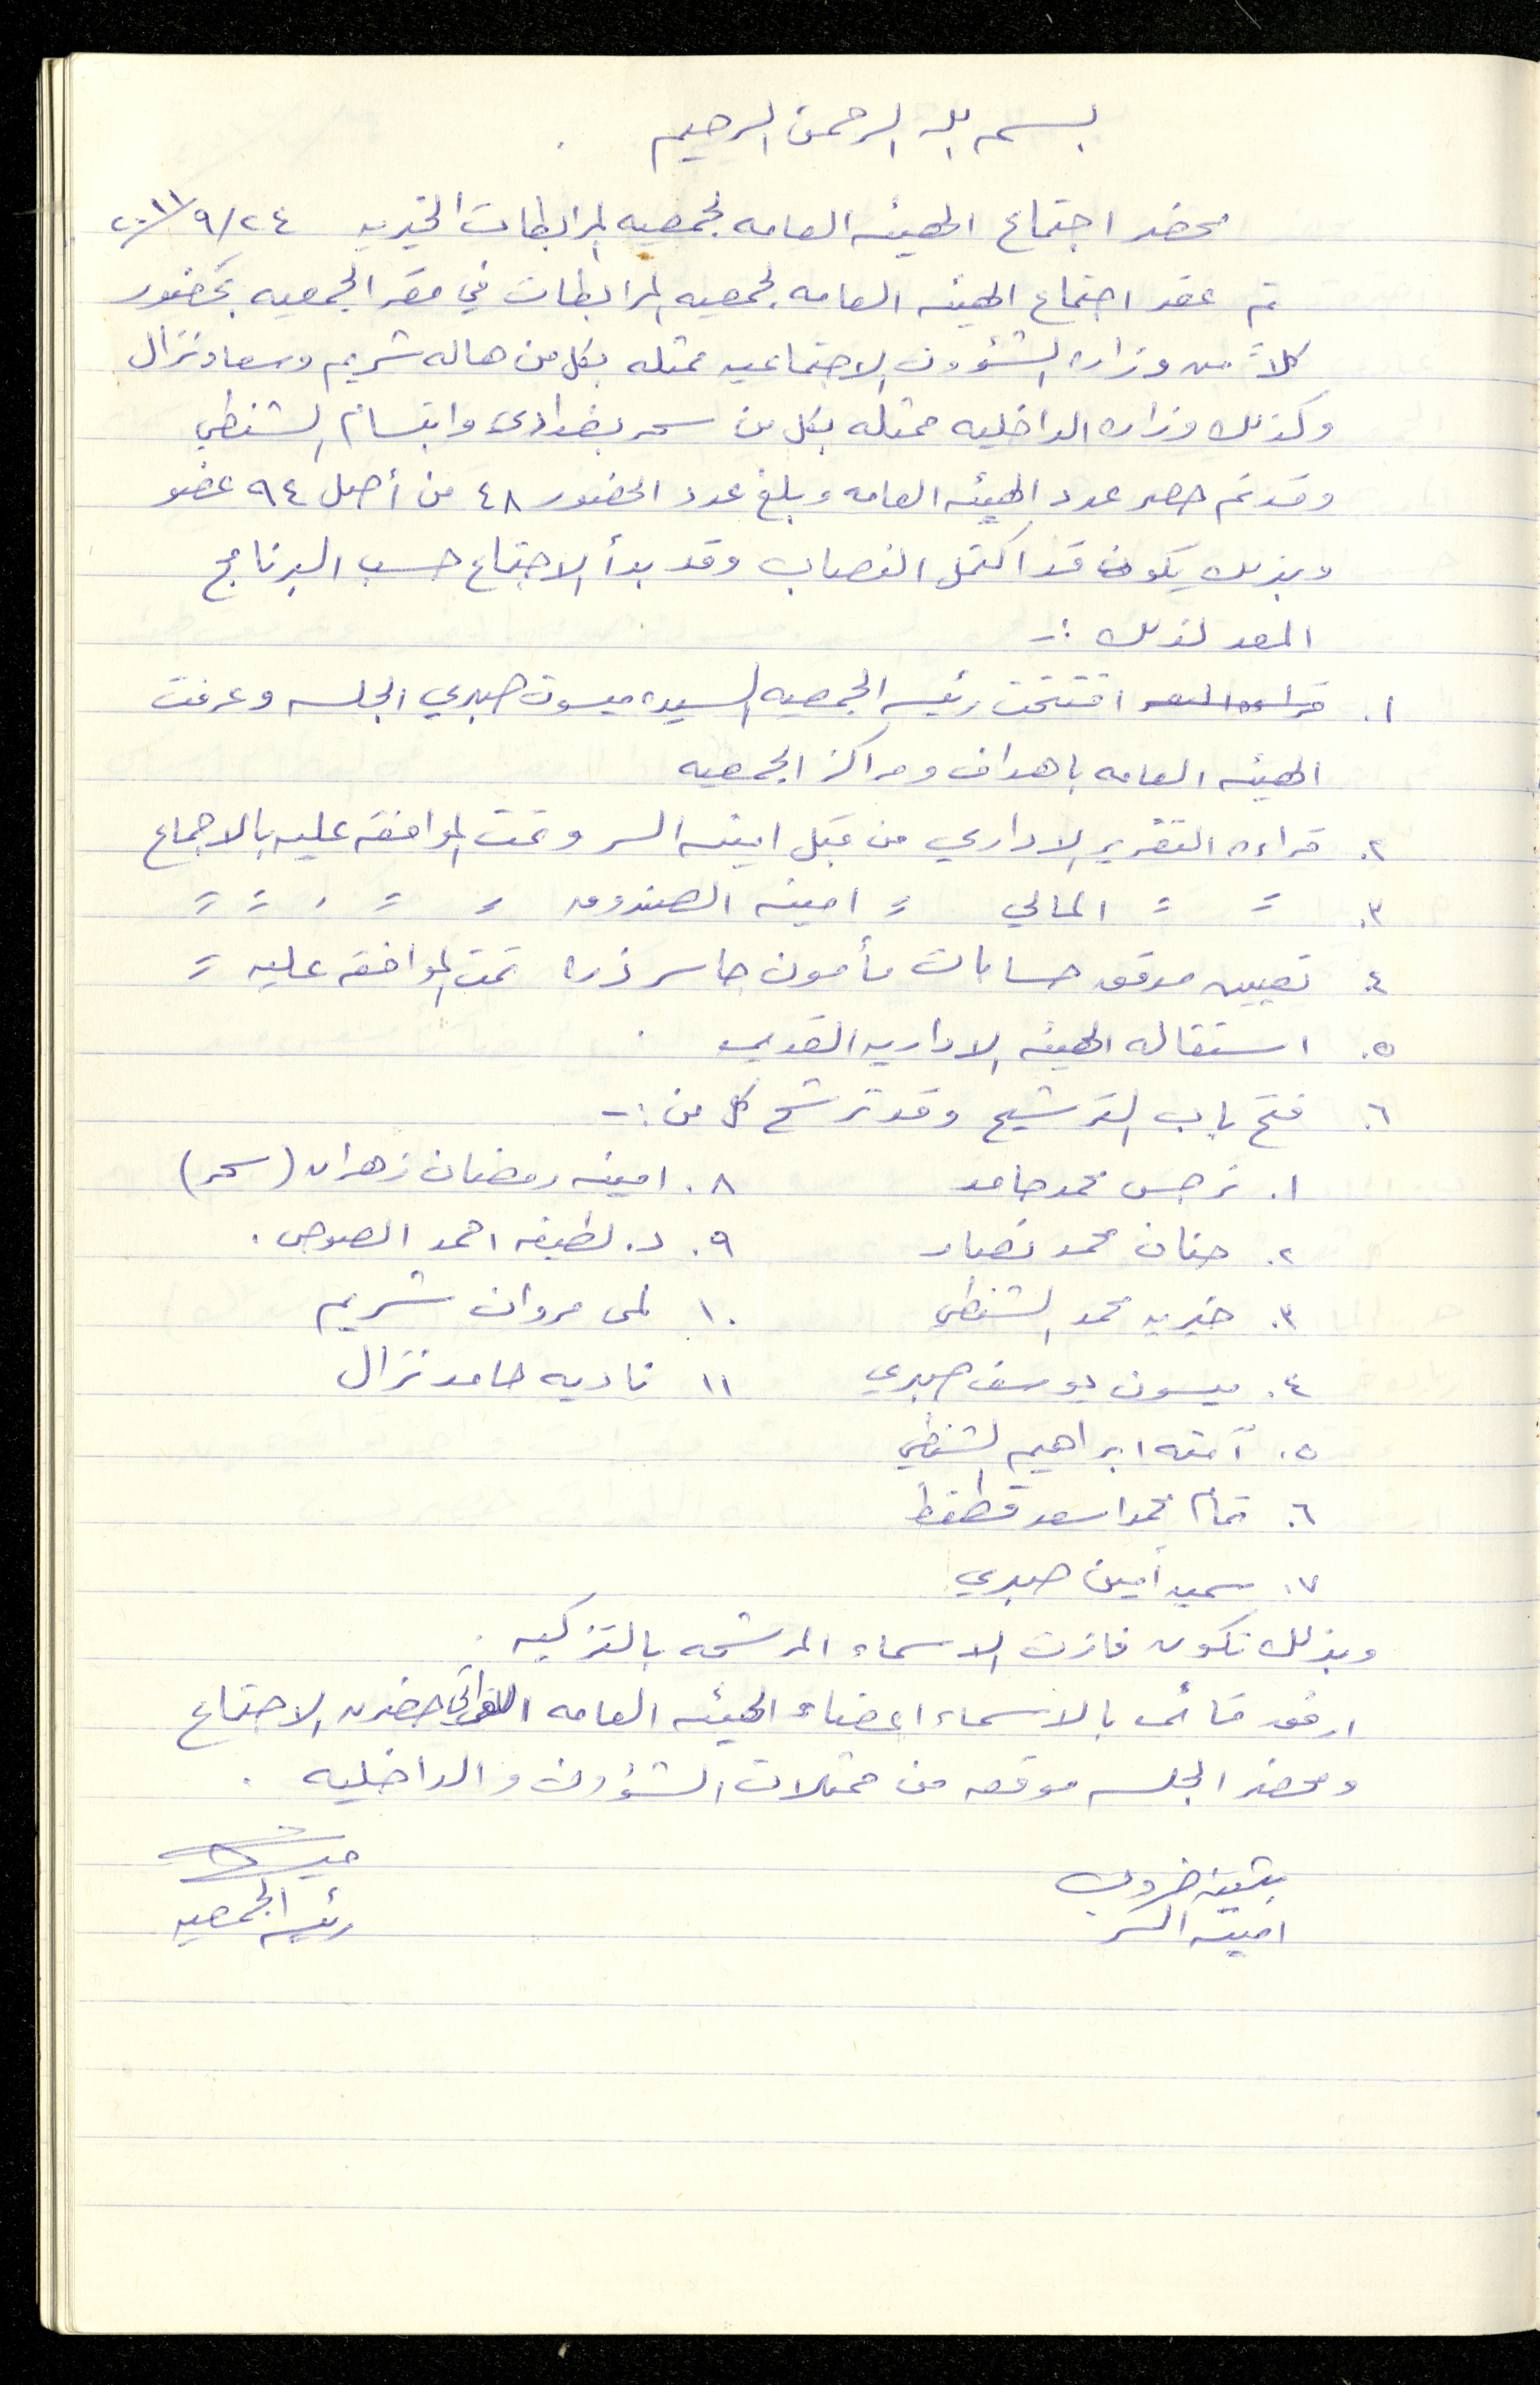 بسم الله الرحمن الرحيم
محضر اجتماع الهيئه العامه لجمعيه المرابطات الخيريه ٢٤/٩/٢٠١١
تم عقد اجتماع الهيئه العامه لجمعيه المرابطات في مقر الجمعيه بحضور
كلاً من وزاره الشؤون الاجتماعيه ممثله بكل من هاله شريم وسعاد نزال
وكذلك وزاره الداخليه ممثله بكل من سحر بغدادي وابتسام الشنطي
وقد تم حصر عدد الهيئه العامه وبلغ عدد الحضور ٤٨ من أصل ٩٤ عضو
وبذلك يكون قد اكتمل النصاب وقد بدأ الاجتماع حسب البرنامج
المعد لذلك :-
١. افتتحت رئيسه الجمعيه السيده ميسون صبري الجلسه وعرفت
الهيئه العامه باهداف ومراكز الجمعيه
٢. قراءه التقرير الاداري من قبل امينه السر وتمت الموافقه عليه بالاجماع
٣. = = المالي = امينه الصندوق = = = =
٤. تعيين مدقق حسابات مأمون جاسر ذره تمت الموافقه عليه =
٥. استقاله الهيئه الاداريه القديمه
٦. فتح باب الترشيح وقد ترشح كل من :-
١. نرجس محمد حامد ٨. امينه رمضان زهران (سحر)
٢. حنان محمد نصار ٩. د. لطيفه احمد الصوص.
٣. خيريه محمد الشنطي ١٠. لمى مروان شريم
٤. ميسون يوسف صبري ١١ ناديه حامد نزال
٥. آمنه ابراهيم الشنطي
٦. تمام محمد اسعد قطقط
٧. سميه أمين صبري
وبذلك تكون فازت الاسماء المرشحه بالتزكيه.
ارفق قائمه بالاسماء اعضاء الهيئه العامه اللواتي حضرن الاجتماع
ومحضر الجلسه موقعه من ممثلات الشؤون والداخليه.
بثينه
امينه السر
رئيسه الجمعيه